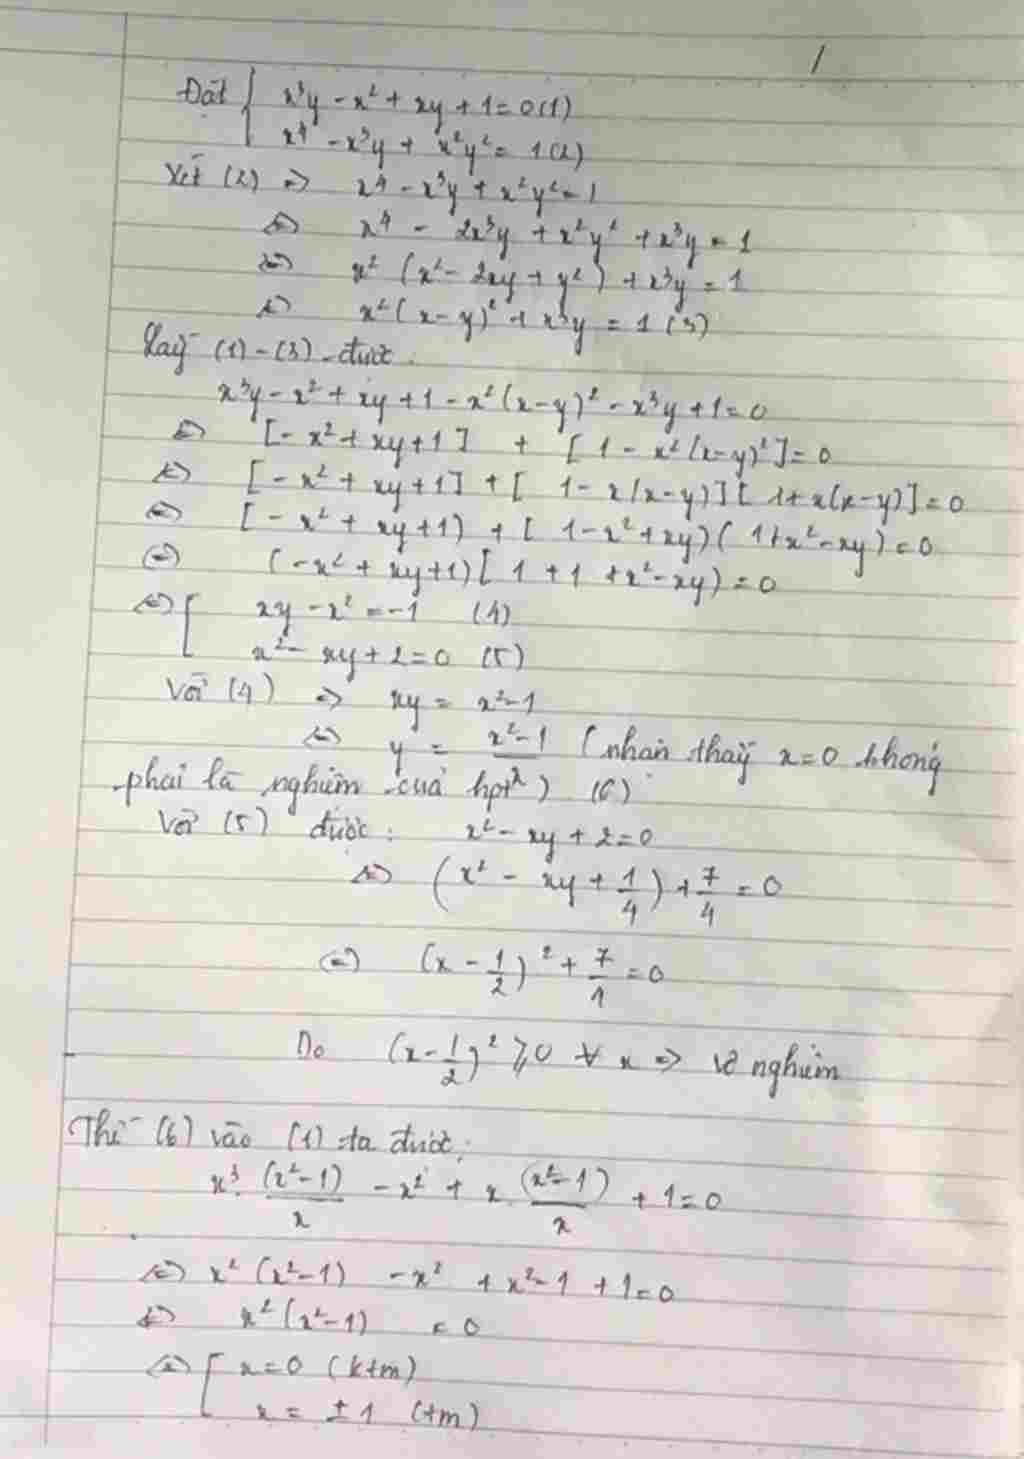 1
Đặt { x³y - x² + xy + 1 = 0 (1)
x⁴ - x³y + x²y² = 1 (2)
Xét (2) => x⁴ - x³y + x²y² = 1
<=> x⁴ - 2x³y + x²y² + x³y = 1
<=> x² (x² - 2xy + y²) + x³y = 1
<=> x² (x - y)² + x³y = 1 (3)
Lấy (1) - (3) được
x³y - x² + xy + 1 - x² (x - y)² - x³y + 1 = 0
<=> [- x² + xy + 1] + [1 - x² (x - y)²] = 0
<=> [- x² + xy + 1] + [1 - x(x - y)] [1 + x(x - y)] = 0
<=> [- x² + xy + 1) + [1 - x² + xy) (1 + x² - xy) = 0
<=> (- x² + xy + 1) [1 + 1 + x² - xy) = 0
<=> [ xy - x² = -1 (4)
x² - xy + 2 = 0 (5)
Với (4) => xy = x² - 1
<=> y = x² - 1 / (nhận thấy x = 0 không
phải là nghiệm của hpt) (6)
Với (5) được: x² - xy + 2 = 0
<=> (x² - xy + 1/4) + 7/4 = 0
<=> (x - 1/2)² + 7/1 = 0
Do (x - 1/2)² ⩾ 0 ∀ x => vô nghiệm
Thế (6) vào (1) ta được:
x³. (x² - 1)/x - x² + x. (x² - 1)/x + 1 = 0
<=> x² (x² - 1) - x² + x² - 1 + 1 = 0
<=> x² (x² - 1) = 0
<=> [ x = 0 (ktm)
x = ± 1 (tm)